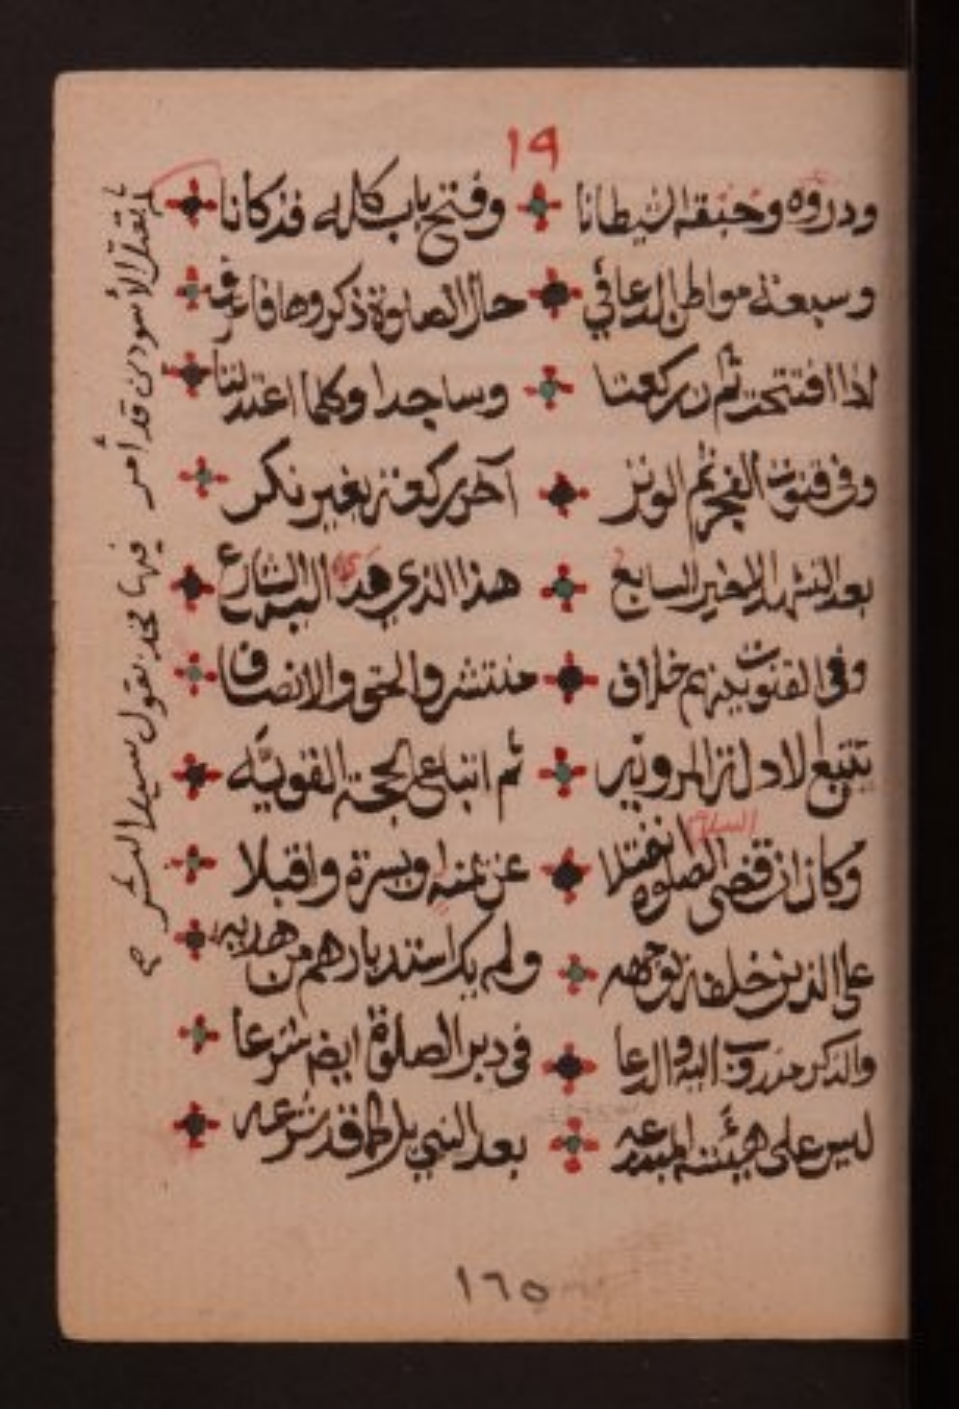 ١٩
ودروه وخنقه الشيطانا وفتح باب كان له قد كانا
وسبعة مواطن الدعا في حال الصلوة ذكروها فاعرف
اذا افتتحت ثم ركعتا وساجدا وكلما اعتدلتا
وفي قنوت الفجر ثم الوتر آخر ركعة بغير نكر
بعد التشهد الاخير السابع هذا الذي قد اليه الشارع
وفي القنوت خلاف منتشر والحق والانصاف
تتبع الادلة المروية ثم اتباع الحجة القوية
وكان ان قضى الصلوة انفتلا عن يمنه ويسرة واقبلا
السلام
على الذين خلفه بوجهه ولم يكن استدبارهم من هديه
والذكر مندوب اليه والدعا في دبر الصلوة ايضا شرعا
ليس على هيئته المبتدعه بعد النبي بل كما قد شرعه
بقتل الأسودين قد أمر فيها محمد يقول سيد البشر
١٦٥